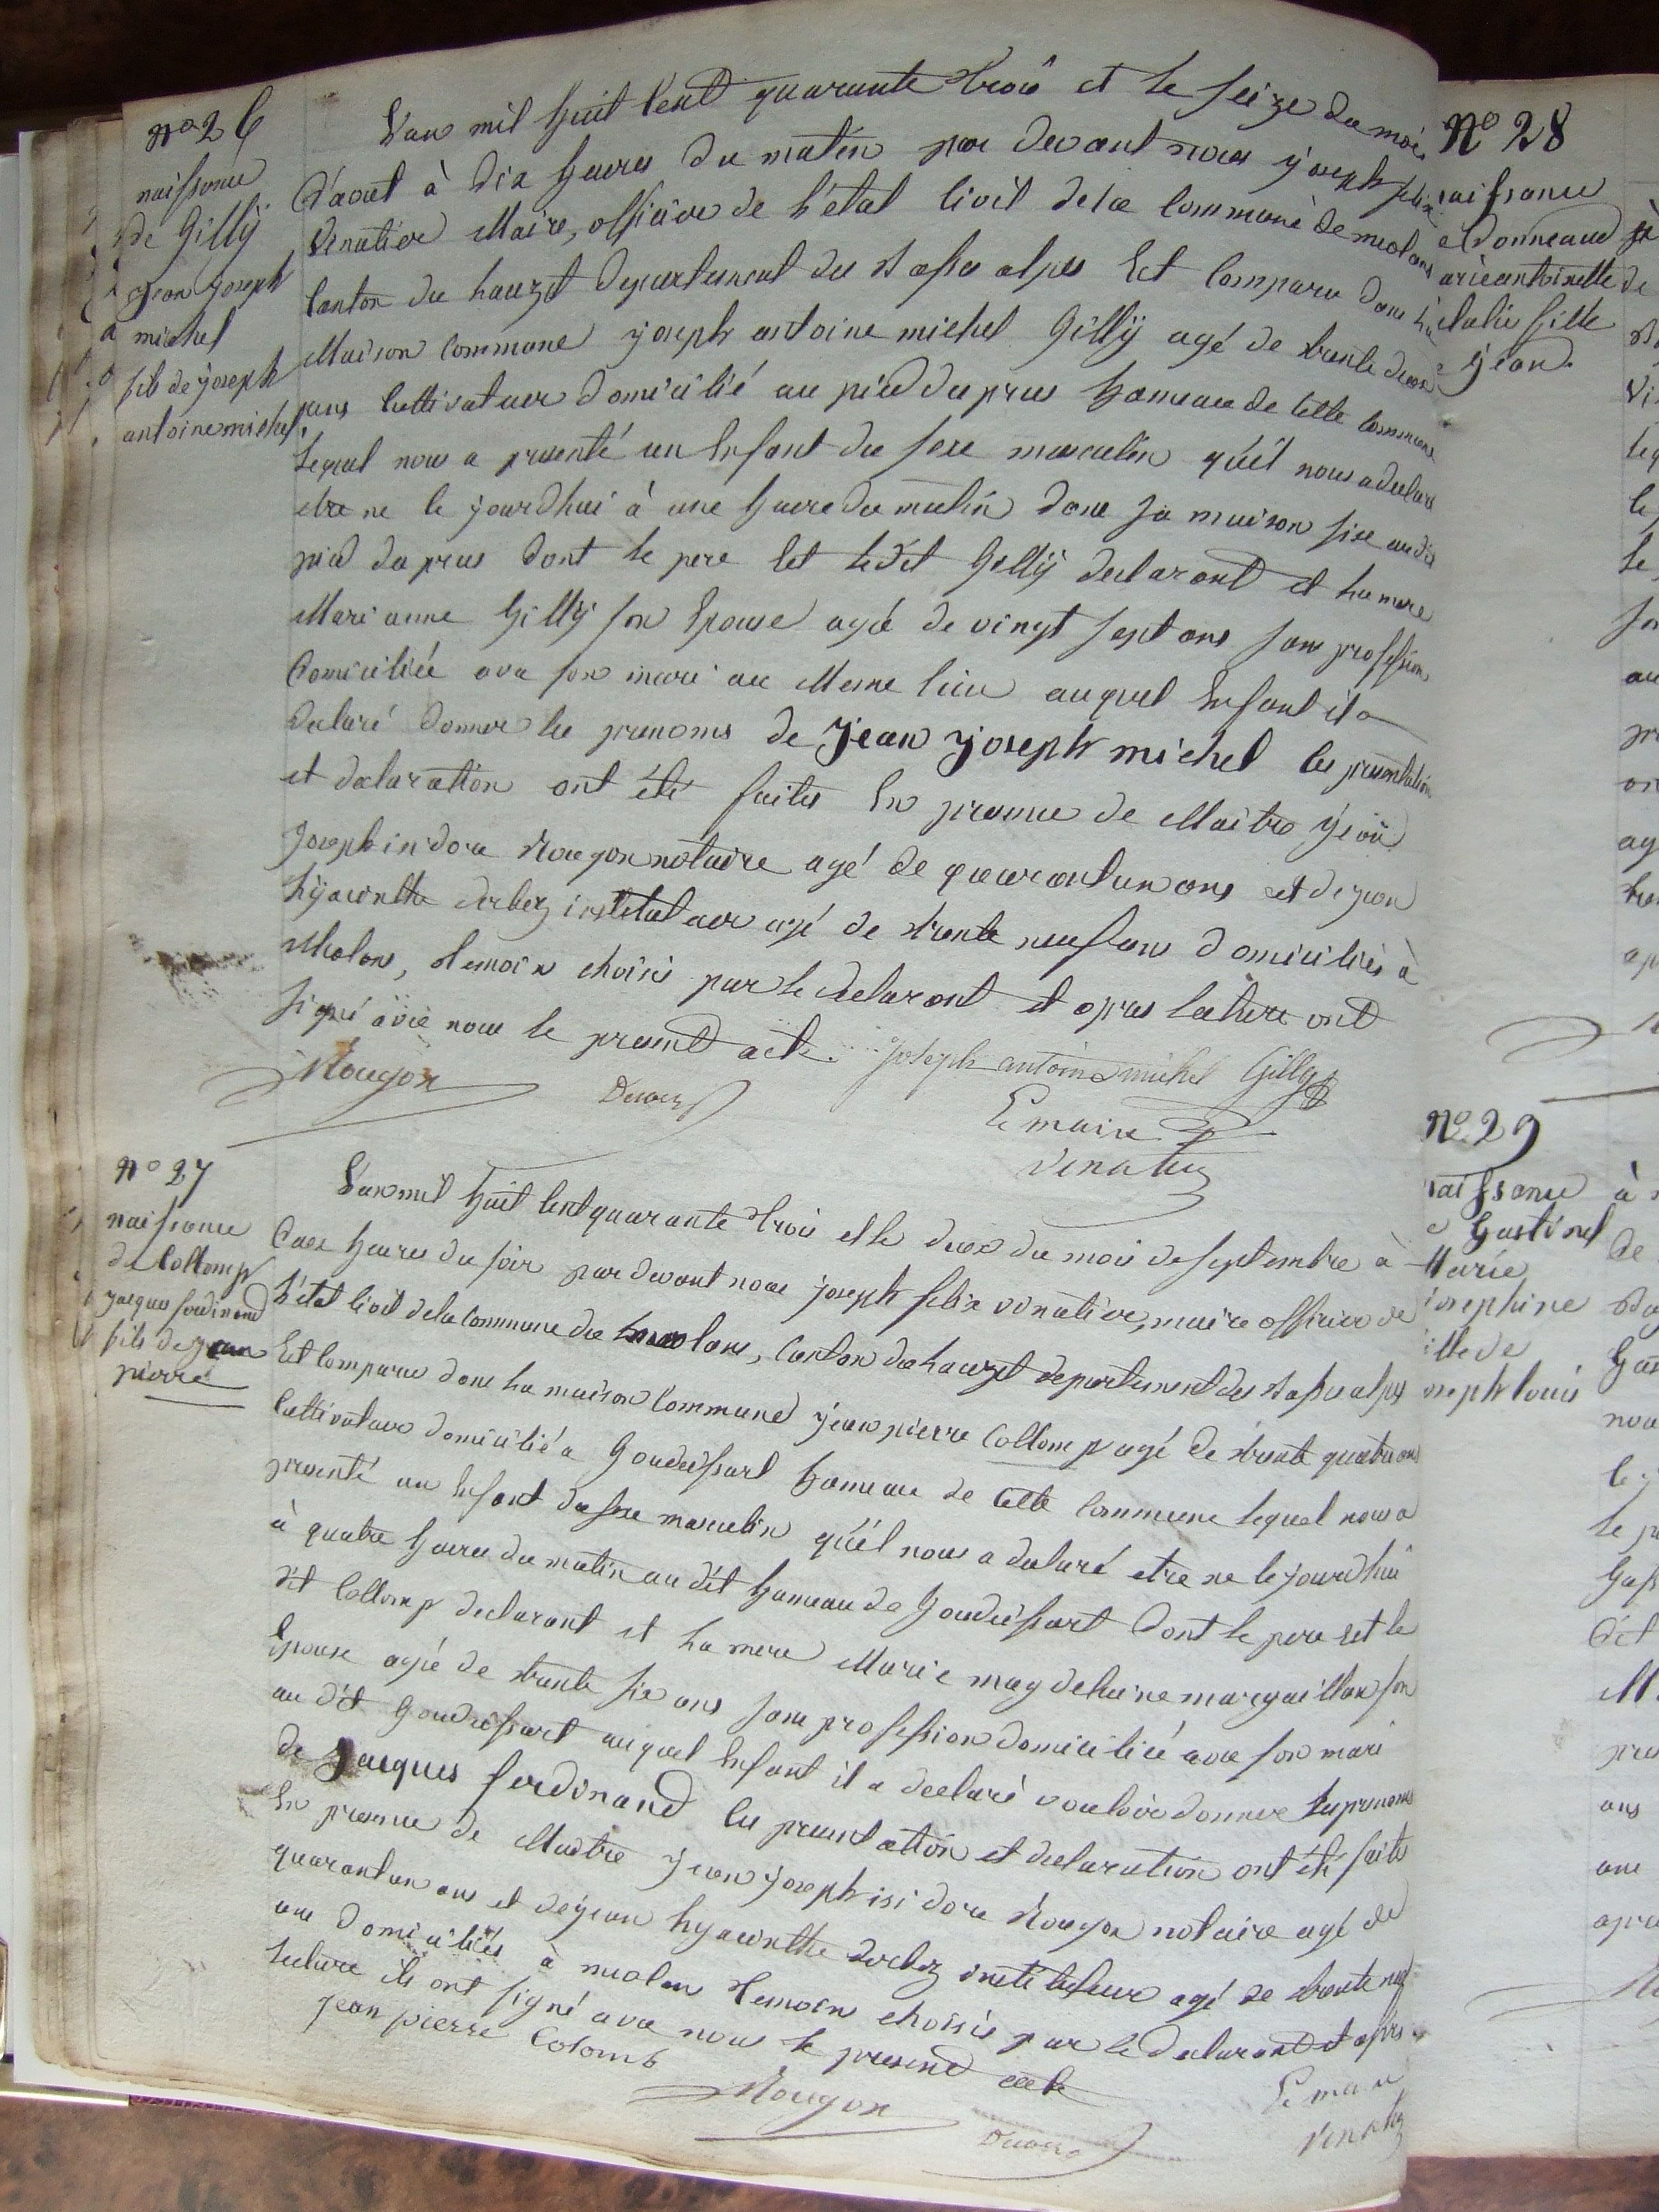 nº 26
naissance
de Gilly
jean joseph
michel
fils de joseph
antoine michel
L'an mil huit Cent quarante trois et le seize du mois
d'aout à dix heures du matin par devant nous joseph felix
vinatier Maire, officier de l'état Civil de la Commune de meolans
Canton du Lauzet departement des basses alpes Est Comparu dans la
Maison Commune joseph antoine michel Gilly agé de trente deux
ans Cultivateur domicilié au pied du prus hameau de Cette Commune
lequel nous a presenté un Enfant du sexe masculin qu'il nous a declaré
etre ne le jourdhui à une heure du matin dans sa maison sise audit
pied du prus dont le pere Est ledit Gilly declarant et la mere
Marianne Gilly son Epouse agée de vingt sept ans sans profession
domiciliée avec son mari au Meme lieu auquel Enfant il a
declaré donner les prenoms de Jean joseph michel les presentation
et declaration ont été faites En presence de Maitre jean
joseph isidore Rougon notaire agé de quarantun ans et de jean
hyacinthe derbez instituteur agé de trente neuf ans domiciliés à
Meolans, temoins choisis par le declarant et apres lecture ont
signé avec nous le present acte. joseph antoine michel Gilly
Rougon
Le maire
vinatier
nº 27
naissance
de Collomp
jacques ferdinand
fils de jean
pierre
L'an mil huit Cent quarante trois et le deux du mois de septembre à
deux heures du soir par devant nous joseph felix vinatier, maire officier de
l'état Civil de la Commune de meolans, Canton du Lauzet departement des basses alpes
Est Comparu dans la maison Commune jean pierre Collomp agé de trente quatre ans
Cultivateur domicilié a Goudeissart hameau de Cette Commune lequel nous a
presenté un Enfant du sexe masculin qu'il nous a declaré etre ne le jourdhui
à quatre heures du matin au dit hameau de Goudeissart dont le pere Est le
dit Collomp declarant et la mere Marie magdelaine margaillan son
Epouse agée de trente six ans sans profession domiciliée avec son mari
au dit Goudeissart auquel Enfant il a declaré vouloir donner les prenoms
de Jacques ferdinand les presentation et declaration ont été faites
En presence de Maitre jean joseph isidore Rougon notaire agé de
quarantun ans et de jean hyacinthe derbez instituteur agé de trente neuf
ans domiciliés à meolans temoins choisis par le declarant et apres
lecture ils ont signé avec nous le present acte
jean pierre Colomb
Rougon
Le maire
vinatier
Nº 28
naissance
arie antoinette
fille
jean.
Nº 29
naissance
Gastinel
Marie
josephine
fille de
joseph louis